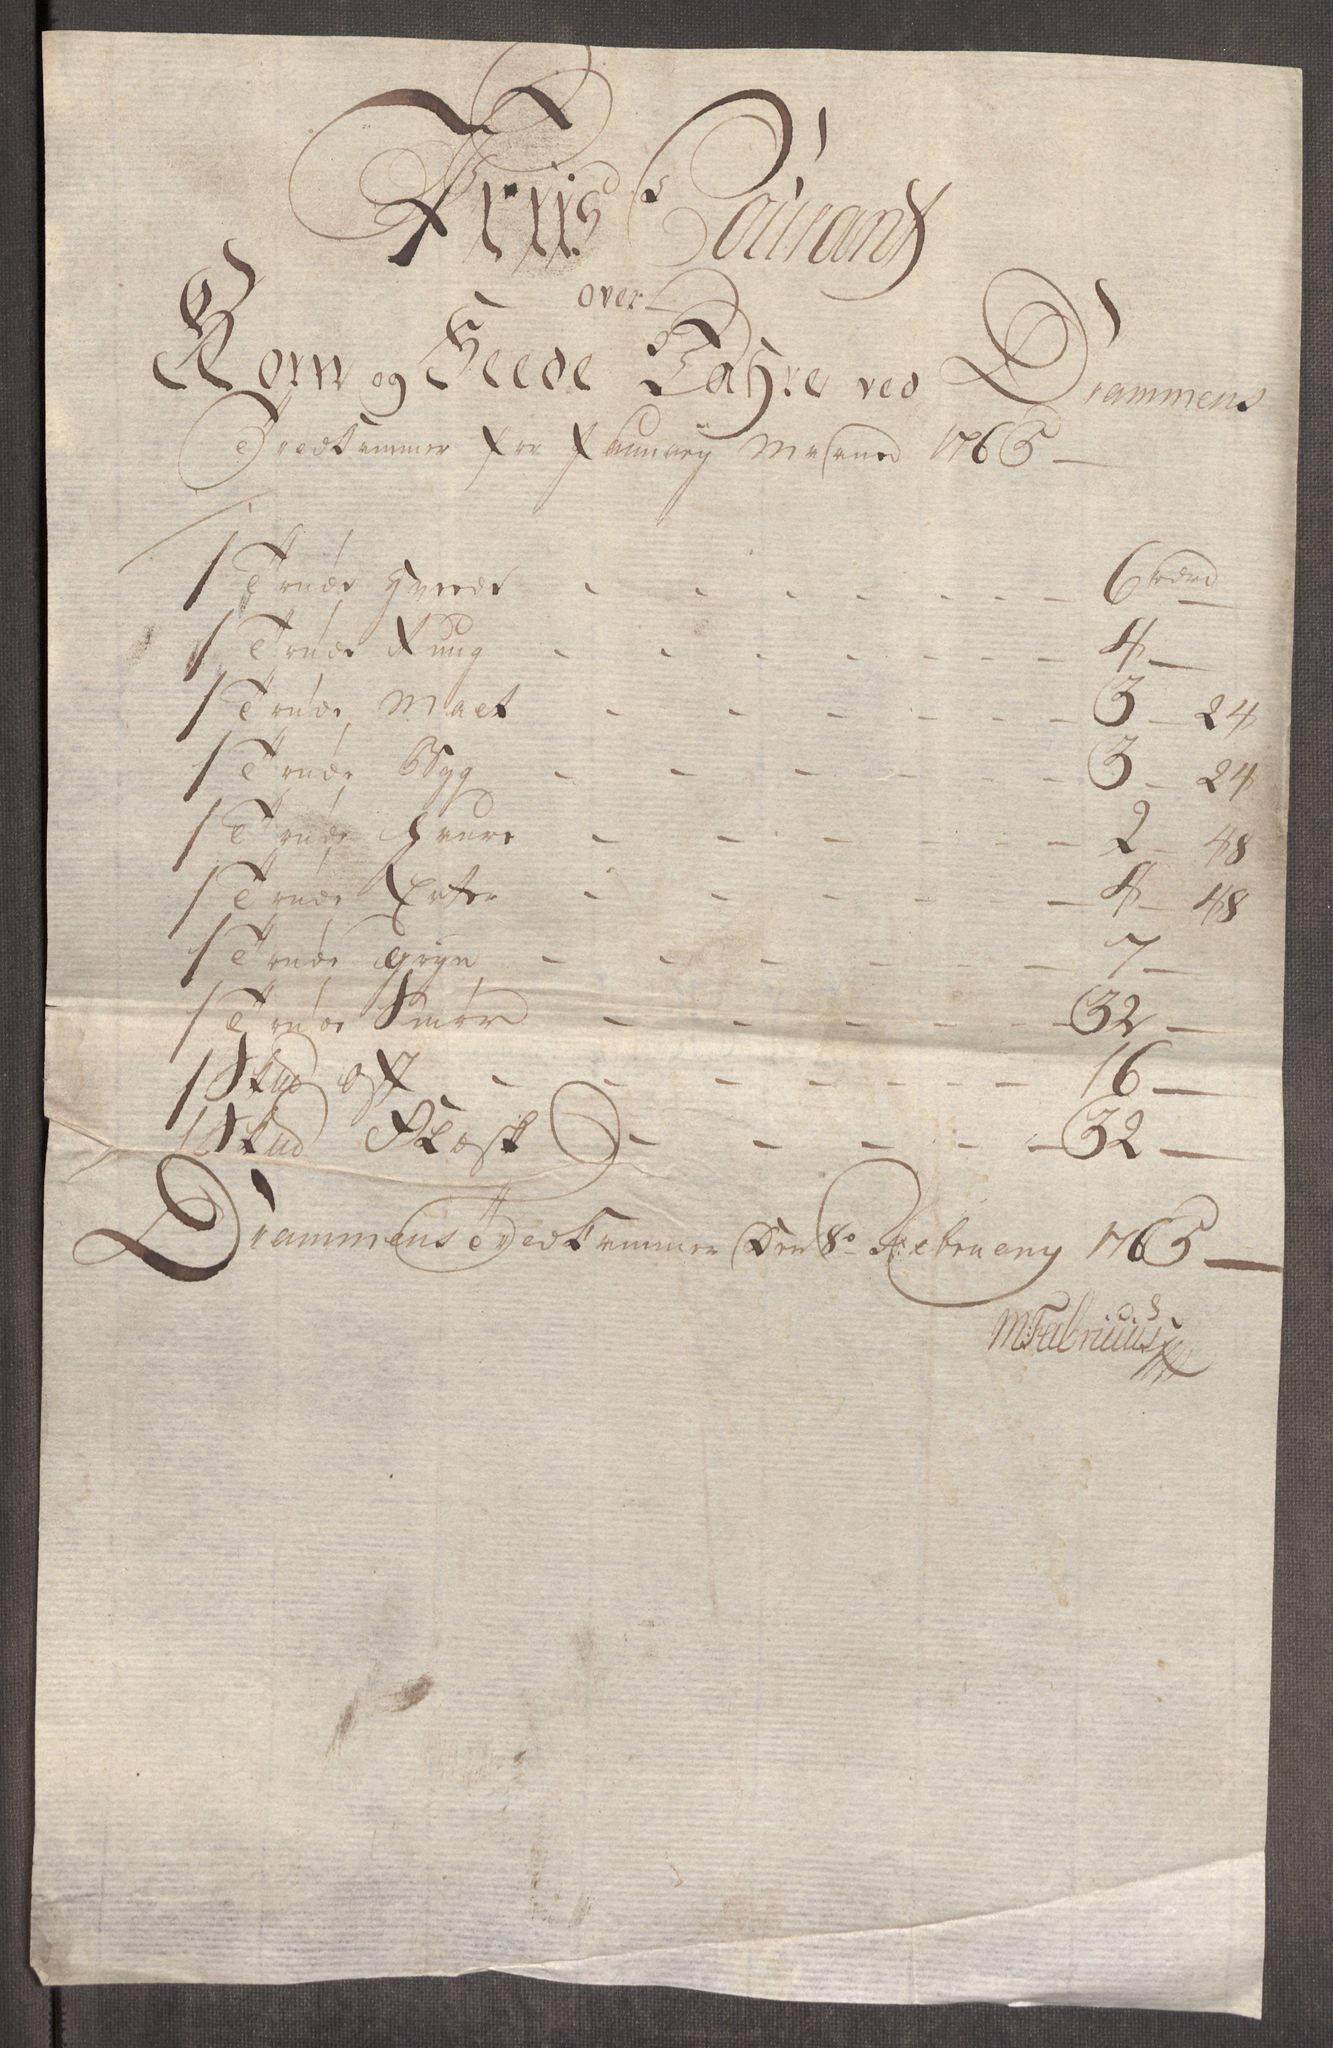 Priis Courant
over
Korn og Feede Wahre ved Drammens
Tredkammer for January Maaned 1765
1 Tønde Hvede - - - - - - - 6 rdr
1 Tønde Rug - - - - - - - 4 -
1 Tønde Malt - - - - - - - 3 - 24
1 Tønde Byg - - - - - - - 3 - 24
1 Tønde Havre - - - - - - - 2 - 48
1 Tønde Erter - - - - - - - 4 - 48
1 Tønde Gryn - - - - - - - 7 -
1 Tønde Smør - - - - - - - 32 -
1 Skud ost - - - - - - - 16 -
1 Skud Flæsk - - - - - 32 -
Drammens Tredkammer Den 8de February 1765
M: Fabricius